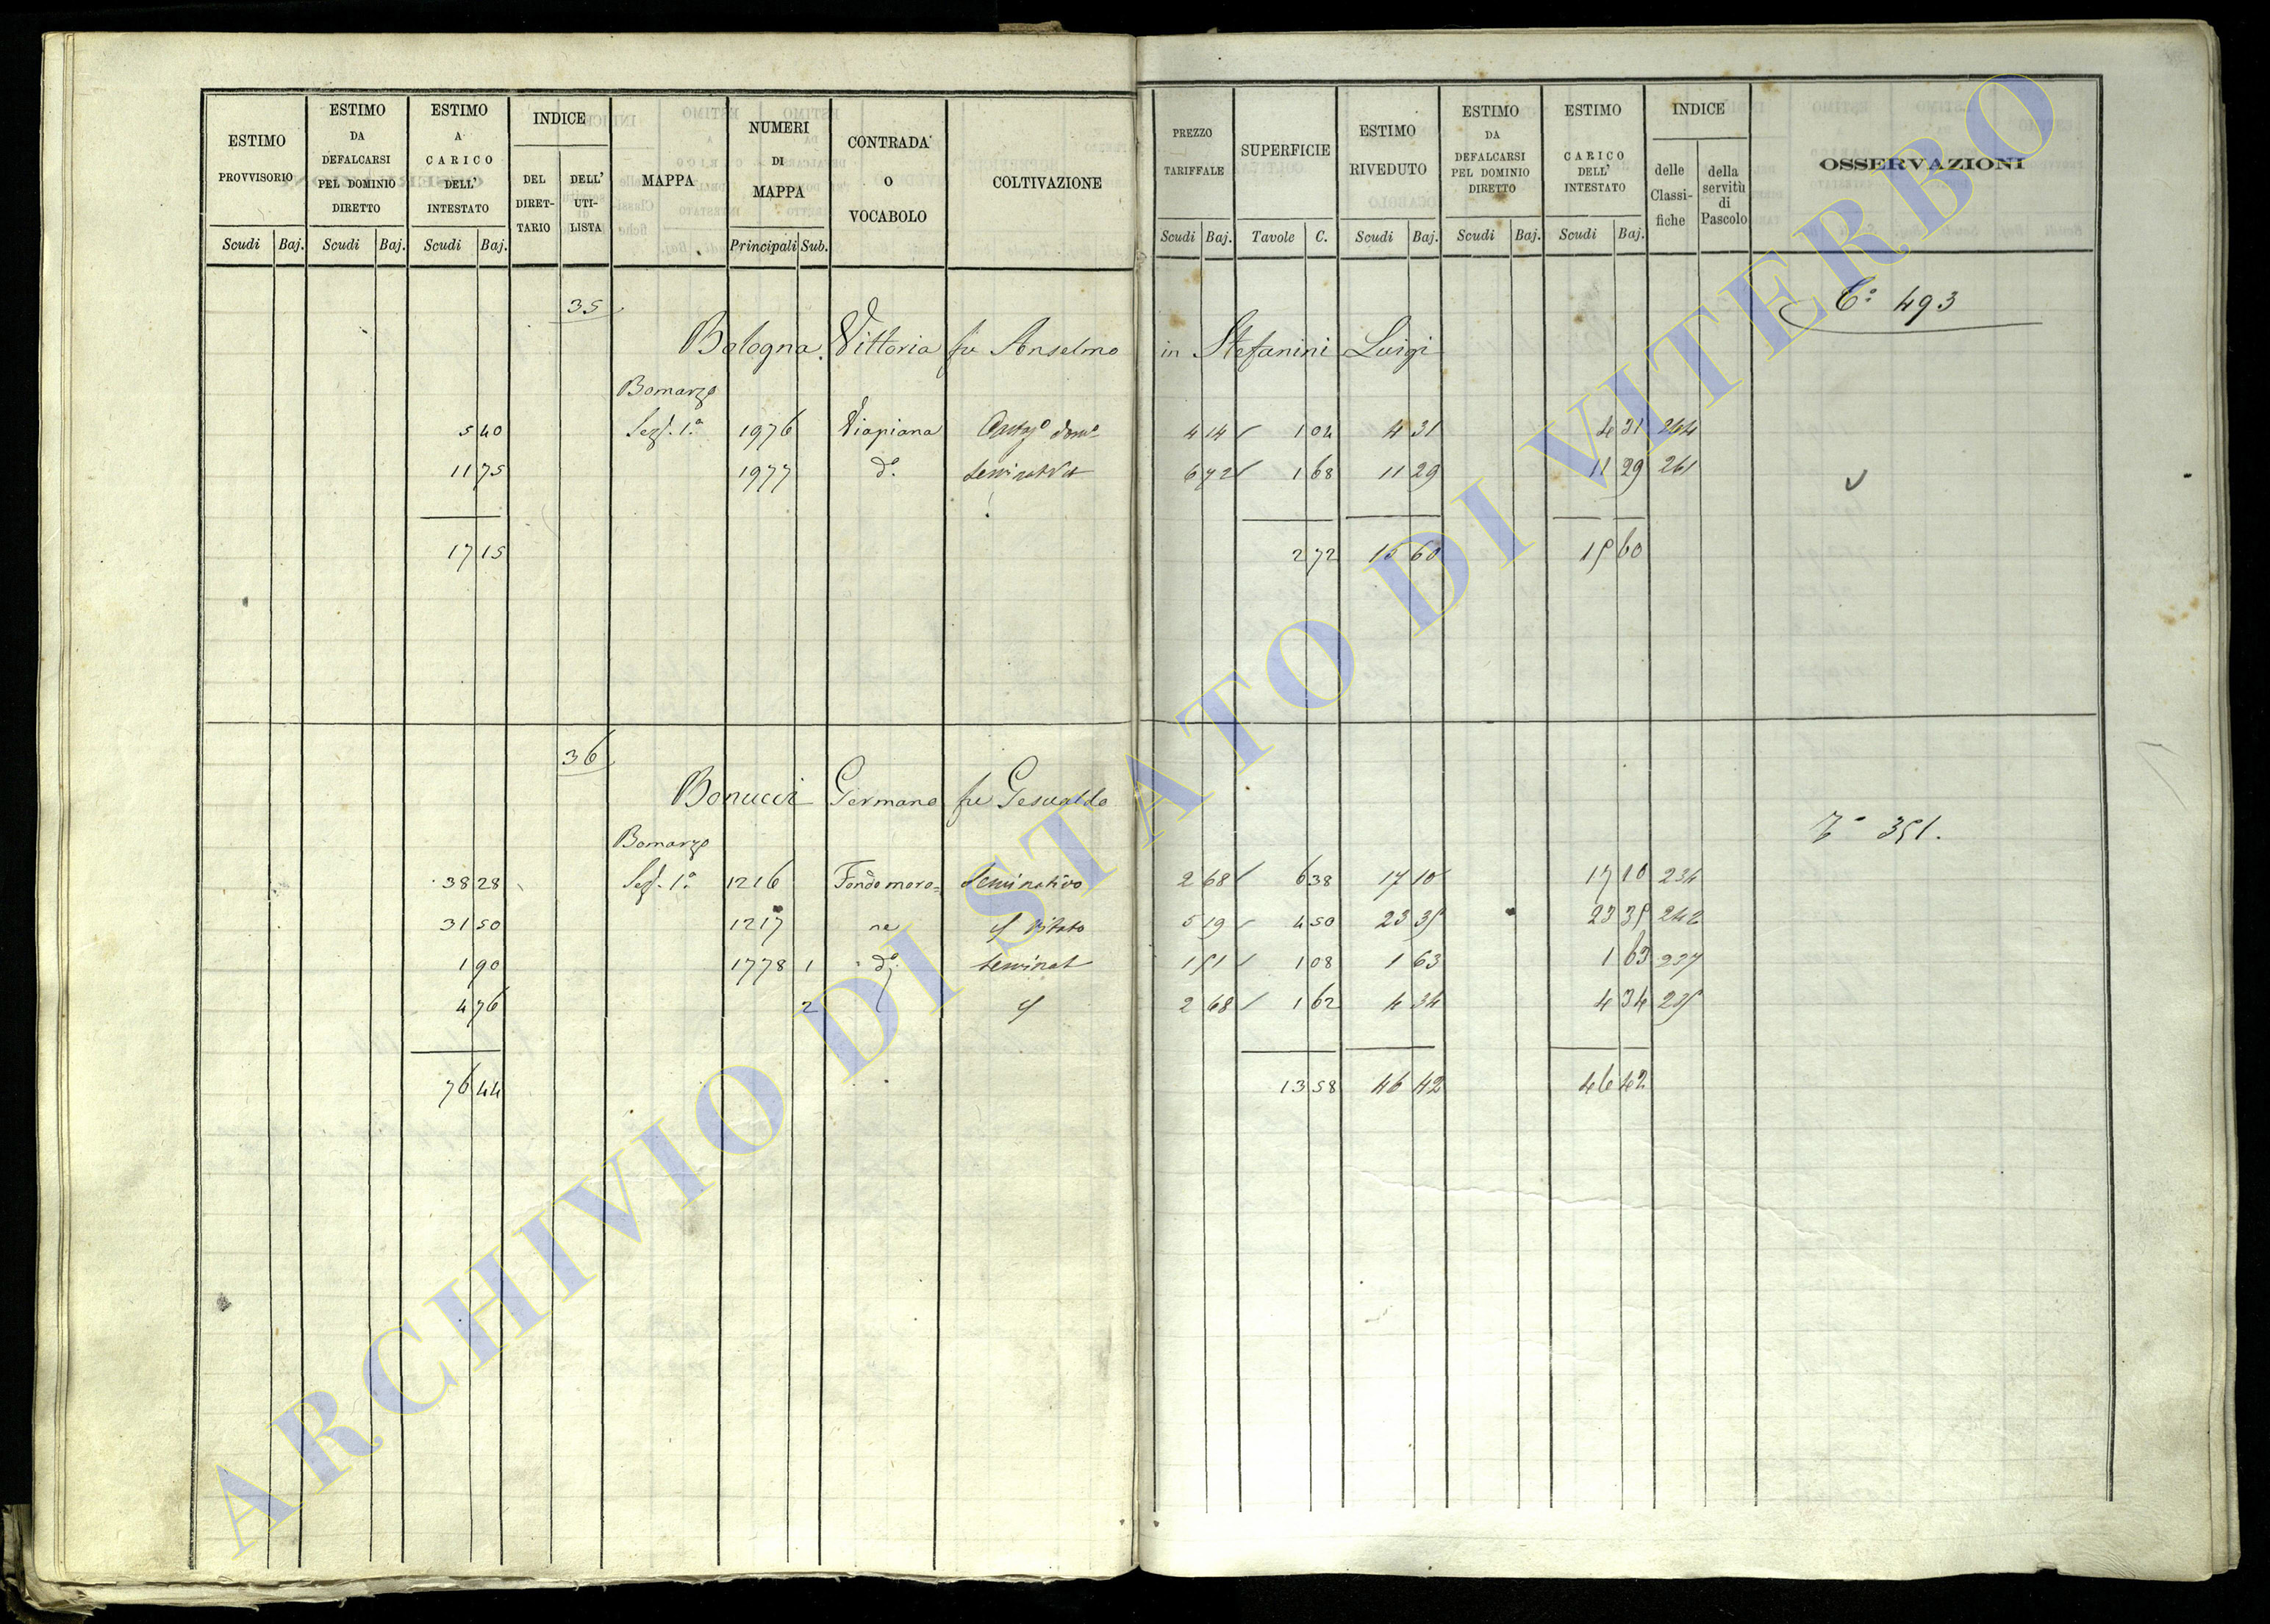 ESTIMO PROVVISORIO | ESTIMO DA DEFALCARSI PEL DOMINIO DIRETTO | ESTIMO A CARICO DELL' INTESTATO | INDICE | MAPPA | NUMERI DI MAPPA | CONTRADA O VOCABOLO | COLTIVAZIONE | PREZZO TARIFFALE | SUPERFICIE | ESTIMO RIVEDUTO | ESTIMO DA DEFALCARSI PEL DOMINIO DIRETTO | ESTIMO A CARICO DELL' INTESTATO | INDICE | OSSERVAZIONI
DEL DIRET-TARIO | DELL' UTI-LISTA | delle Classi-fiche | della servitù di Pascolo
Scudi | Baj. | Scudi | Baj. | Scudi | Baj. | Principali | Sub. | Scudi | Baj. | Tavole | C. | Scudi | Baj. | Scudi | Baj. | Scudi | Baj.
35 | 493
Bologna Vittoria fu Anselmo in Stefanini Luigi
Bomarzo
5 40 | Sez. 1ª | 1976 | Viapiana | 4 14 | 1 04 | 4 31 | 4 31 | 244
11 75 | 1977 | dº | 6 72 | 1 68 | 11 29 | 11 29 | 261
17 15 | 2 72 | 15 60 | 15 60
36
Bonucci Germano fu Gesualdo
351.
Bomarzo
38 28 | Sez. 1ª | 1216 | Fondo moro= | Seminativo | 2 68 | 6 38 | 17 10 | 17 10 | 234
31 50 | 1217 | ne | Vitato | 5 19 | 4 50 | 23 35 | 23 35 | 242
1 90 | 1778 | 1 | dº | Seminat | 1 51 | 1 08 | 1 63 | 1 63 | 237
4 76 | 2 | 2 68 | 1 62 | 4 34 | 4 34 | 235
76 44 | 13 58 | 46 42 | 46 42
ARCHIVIO DI STATO DI VITERBO